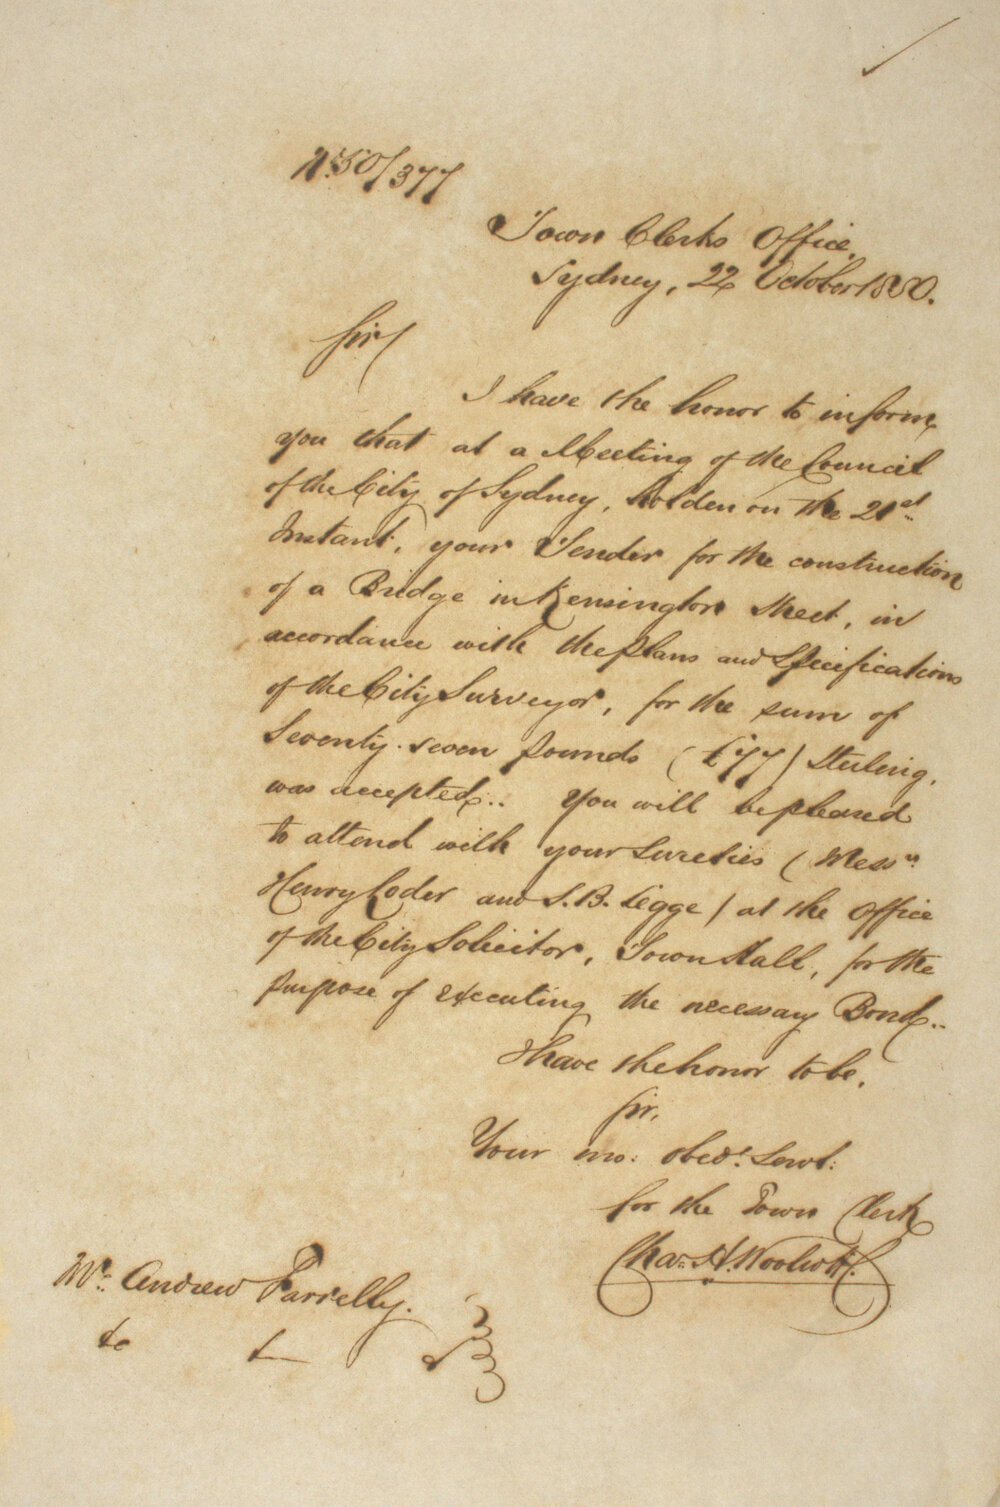 No. 50/377
Town Clerks Office,
Sydney, 22 October 1850.
Sir/
I have the honor to inform
you that at a Meeting of the Council
of the City of Sydney, holden on the 21st
Instant, your Tender for the construction
of a Bridge in Kensington Street, in
accordance with the Plans and Specifications
of the City Surveyor, for the sum of
Seventy-seven pounds (£77) Sterling,
was accepted.. You will be pleased
to attend with your Sureties (Messrs
Henry Coder and S. B. Legge) at the Office
of the City Solicitor, Town Hall, for the
purpose of executing the necessary Bond..
I have the honor to be,
Sir,
Your mo: obedt. Servt:
for the Town Clerk
Chas. H. Woolcott.
Mr. Andrew Farrelly.